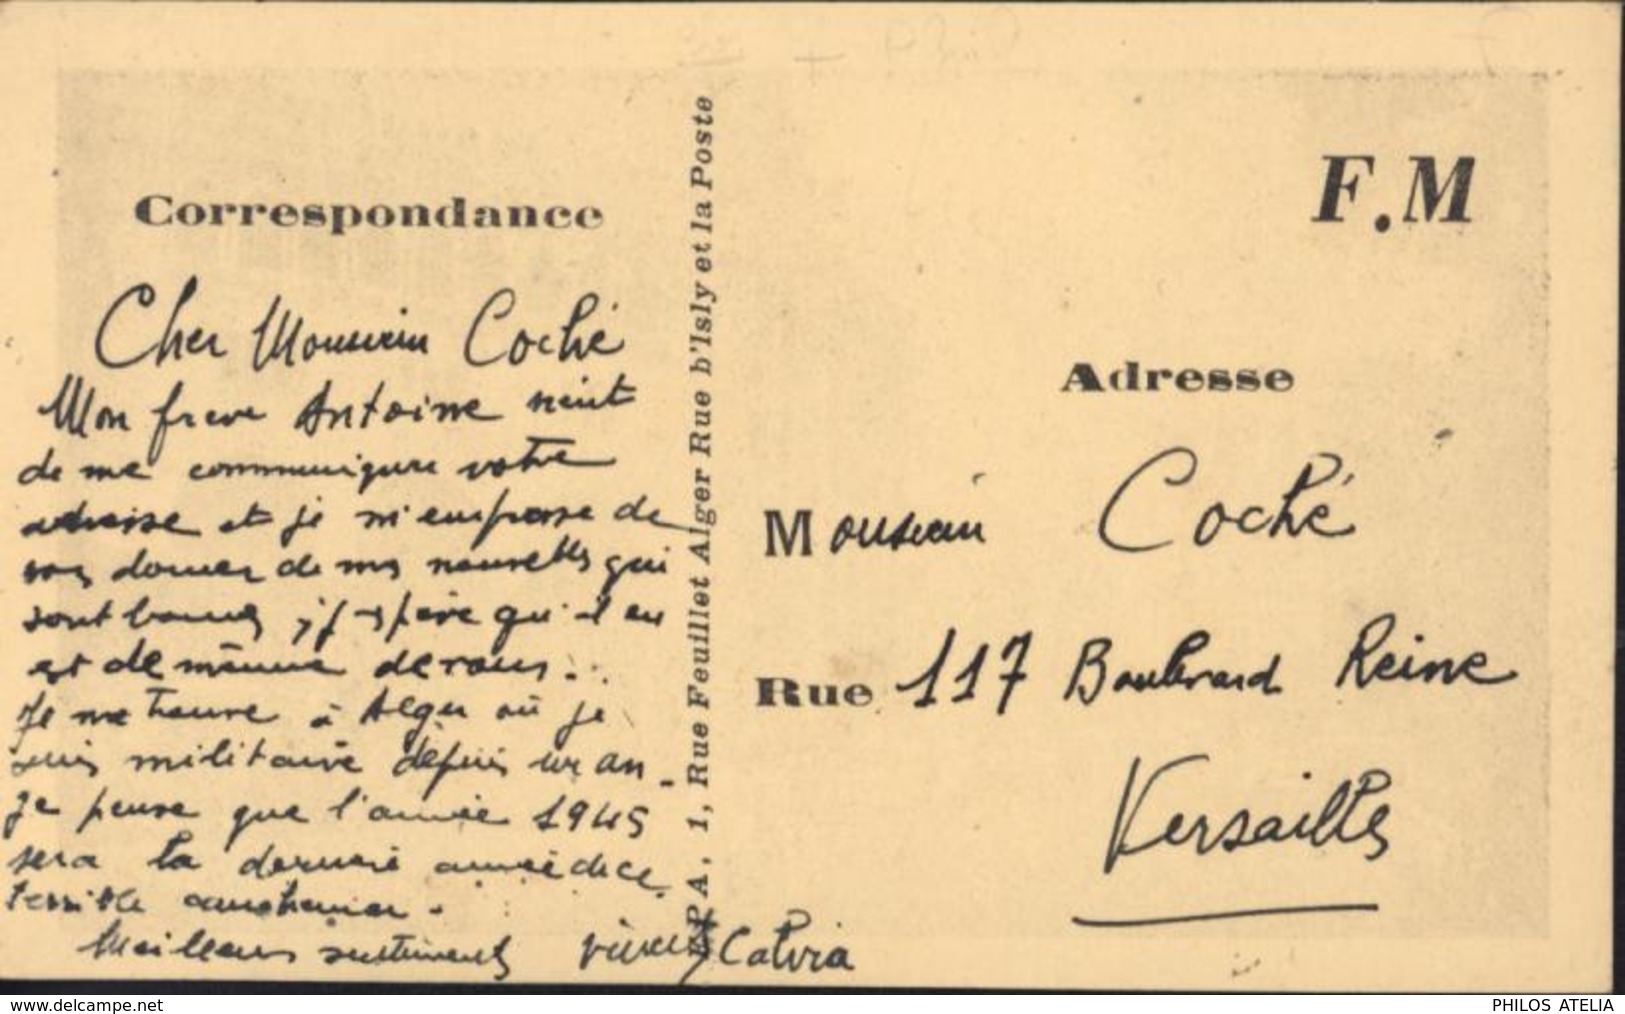 Correspondance
Cher Monsieur Coché
Mon frere Antoine vient
de me communiquer votre
adresse et je m'empresse de
vous donner de mes nouvelles qui
sont bonnes, j'espère qu'il en
est de même de vous..
Je me trouve à Alger où je
suis militaire depuis un an -
Je pense que l'année 1945
sera la derniere année de ce
terrible cauchemar -
Meilleurs sentiments Vincent Calvia
E.P.A. 1, Rue Feuillet Alger Rue b'Isly et la Poste
F.M
Adresse
Monsieur Coché
Rue 117 Boulevard Reine
Versailles
www.delcampe.net
PHILOS ATELIA